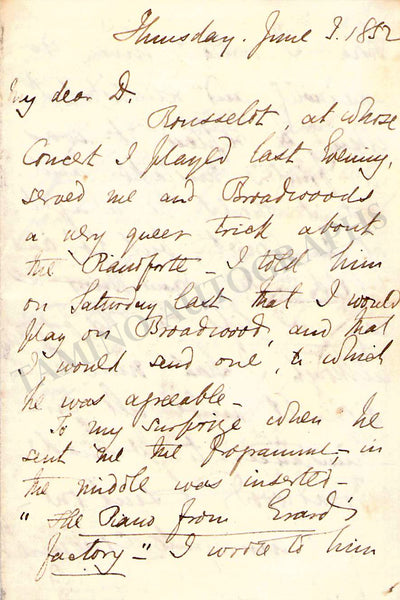 Thursday. June 3. 1852
My dear D.
Rousselot, at whose
Concert I played last Evening,
served me and Broadwoods
a very queer trick about
the Pianoforte - I told him
on Saturday last that I would
play on Broadwood, and that
I would send one, to which
he was agreeable -
To my surprize when he
sent me the Programme, - in
the middle was inserted -
"The Piano from Erard's
factory -" I wrote to him
TAMINO AUTOGRAPHS